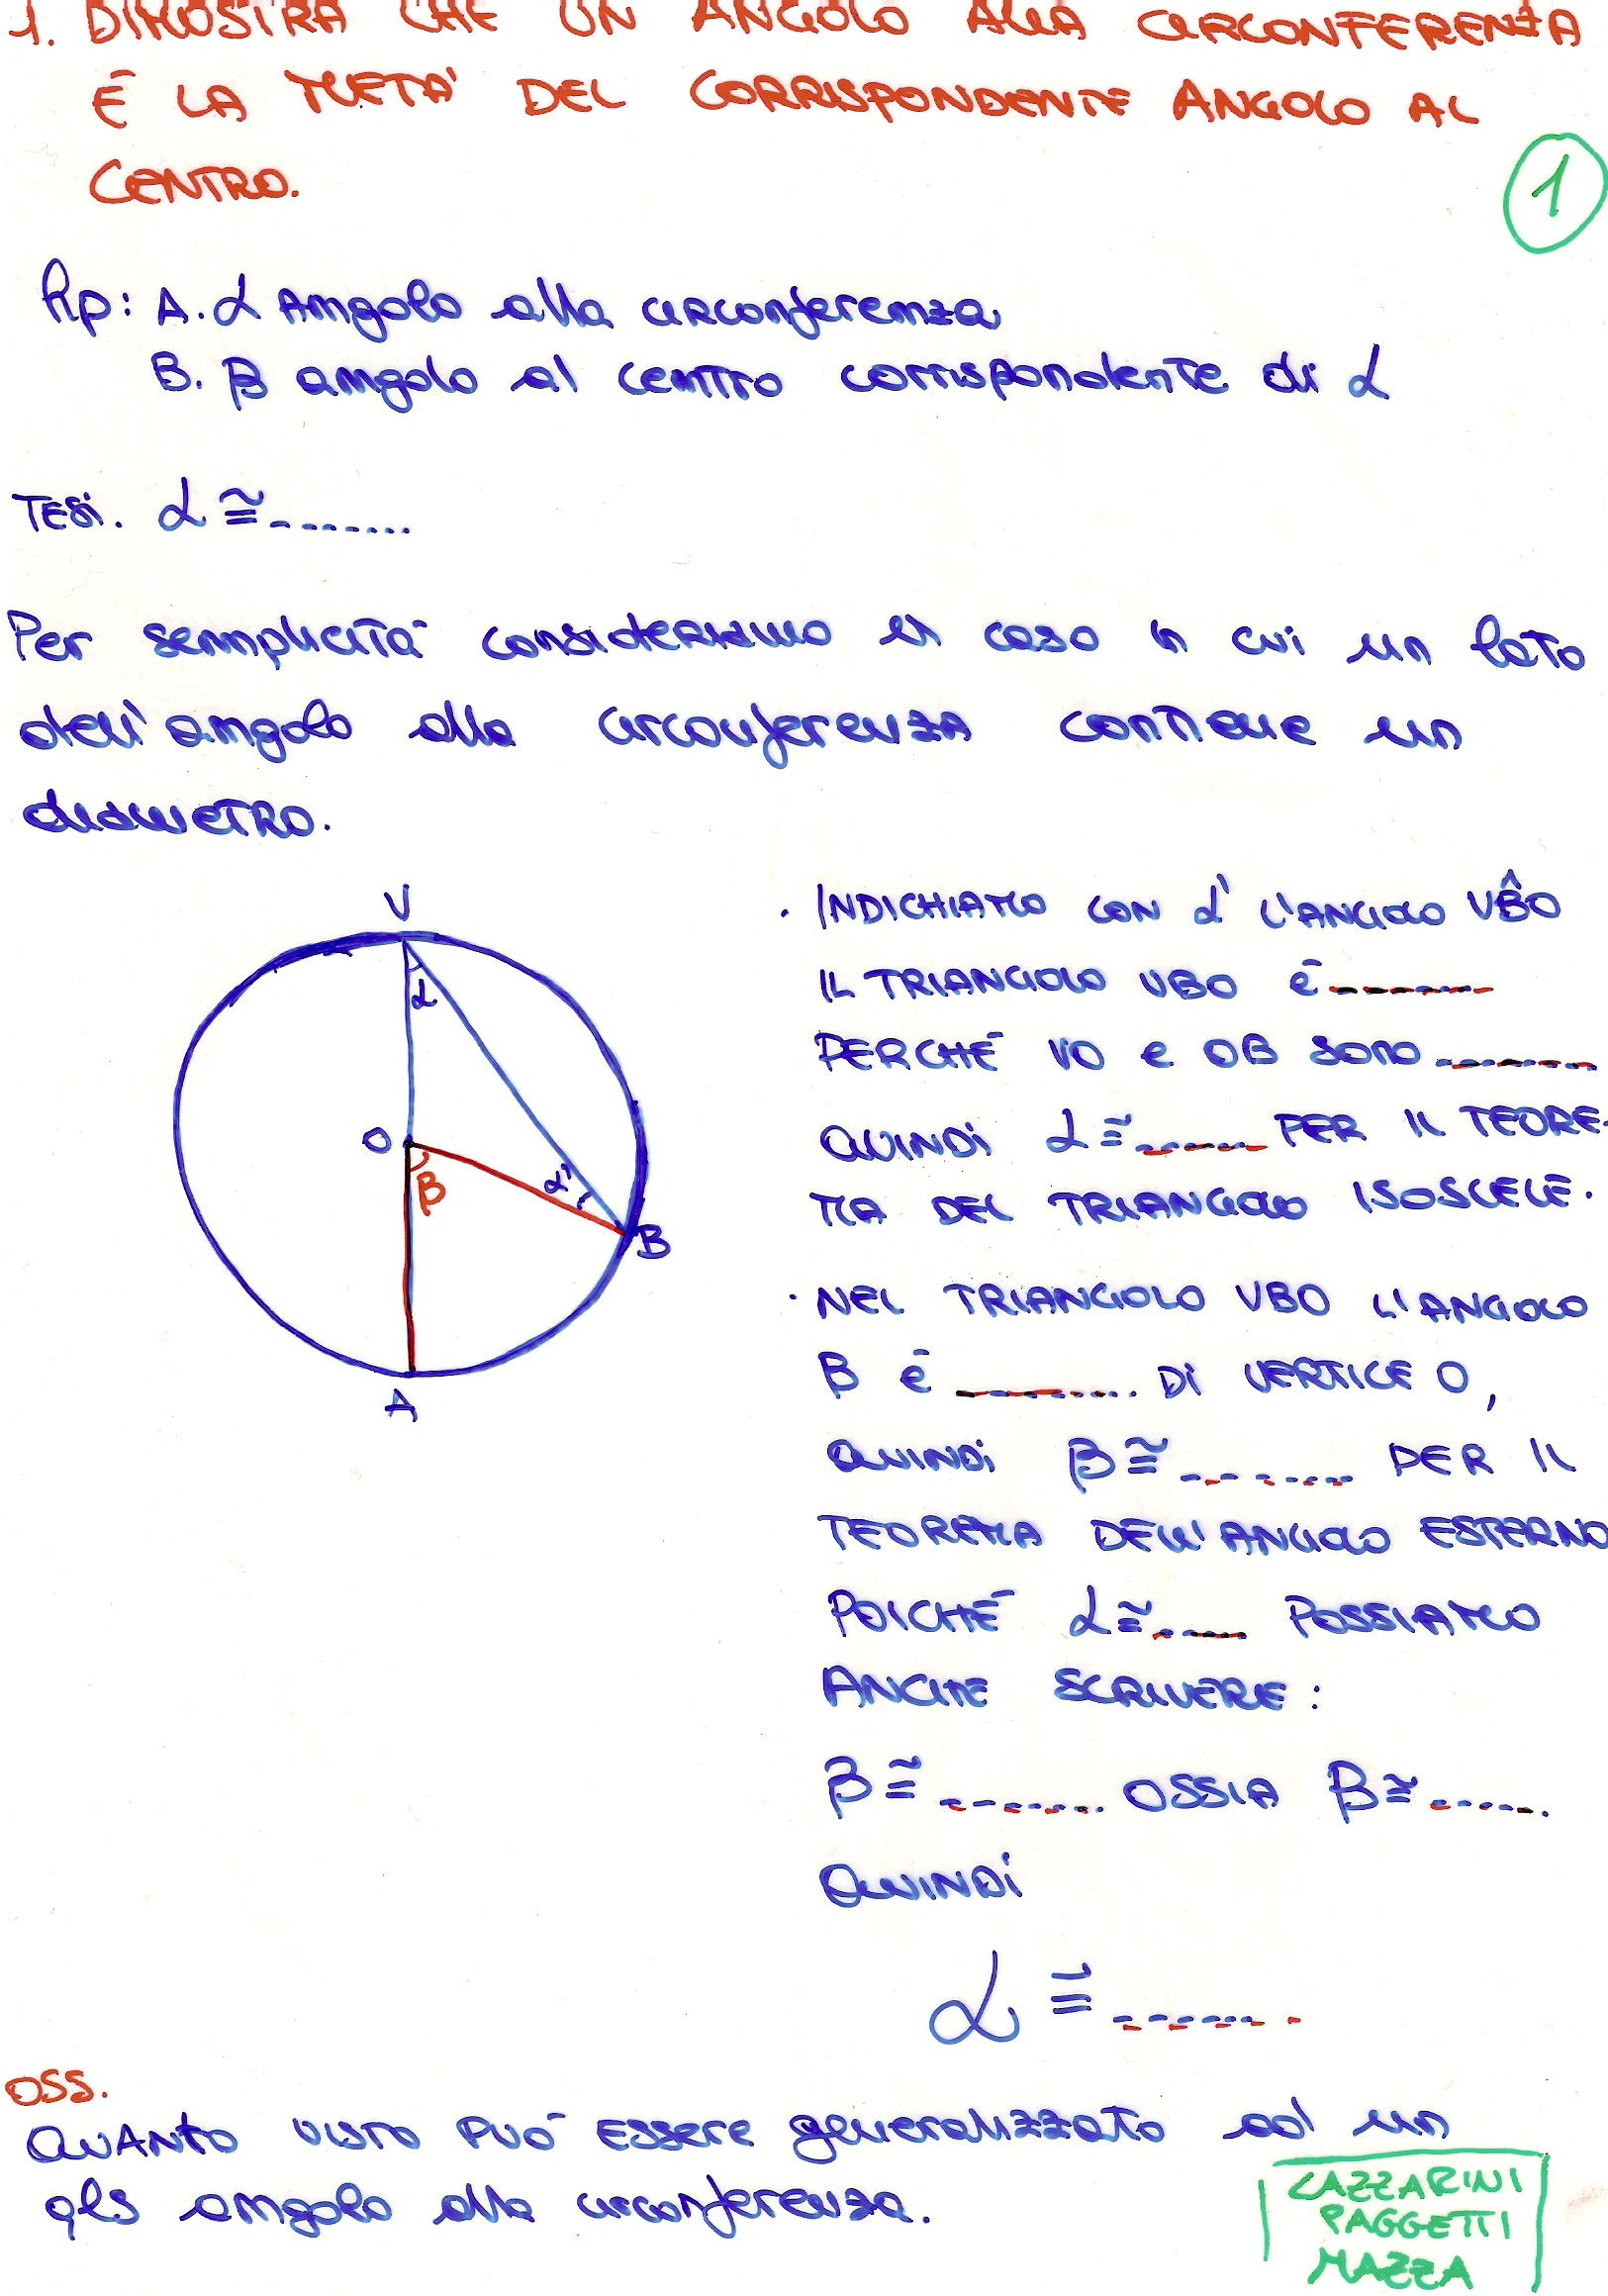 1. DIMOSTRA CHE UN ANGOLO ALLA CIRCONFERENZA
È LA METÀ DEL CORRISPONDENTE ANGOLO AL
CENTRO.
1
Hp: A. α Angolo alla circonferenza
B. β angolo al centro corrispondente di α
TESI. α ≅ ........
Per semplicità consideriamo il caso in cui un lato
dell'angolo alla circonferenza contiene un
diametro.
V
α
O
β
α'
B
A
. INDICHIAMO CON α' L'ANGOLO VB̂O
IL TRIANGOLO VBO È ........
PERCHÉ VO e OB SONO ........
QUINDI α ≅ ........ PER IL TEORE-
MA DEL TRIANGOLO ISOSCELE.
. NEL TRIANGOLO VBO L'ANGOLO
β È ........ DI VERTICE O,
QUINDI β ≅ ........ PER IL
TEOREMA DELL'ANGOLO ESTERNO
POICHÉ α ≅ ...... POSSIAMO
ANCHE SCRIVERE:
β ≅ ........ OSSIA β ≅ .......
QUINDI
α ≅ ........
OSS.
QUANTO VISTO PUÒ ESSERE generalizzato ad un
qls angolo alla circonferenza.
LAZZARINI
PAGGETTI
MAZZA